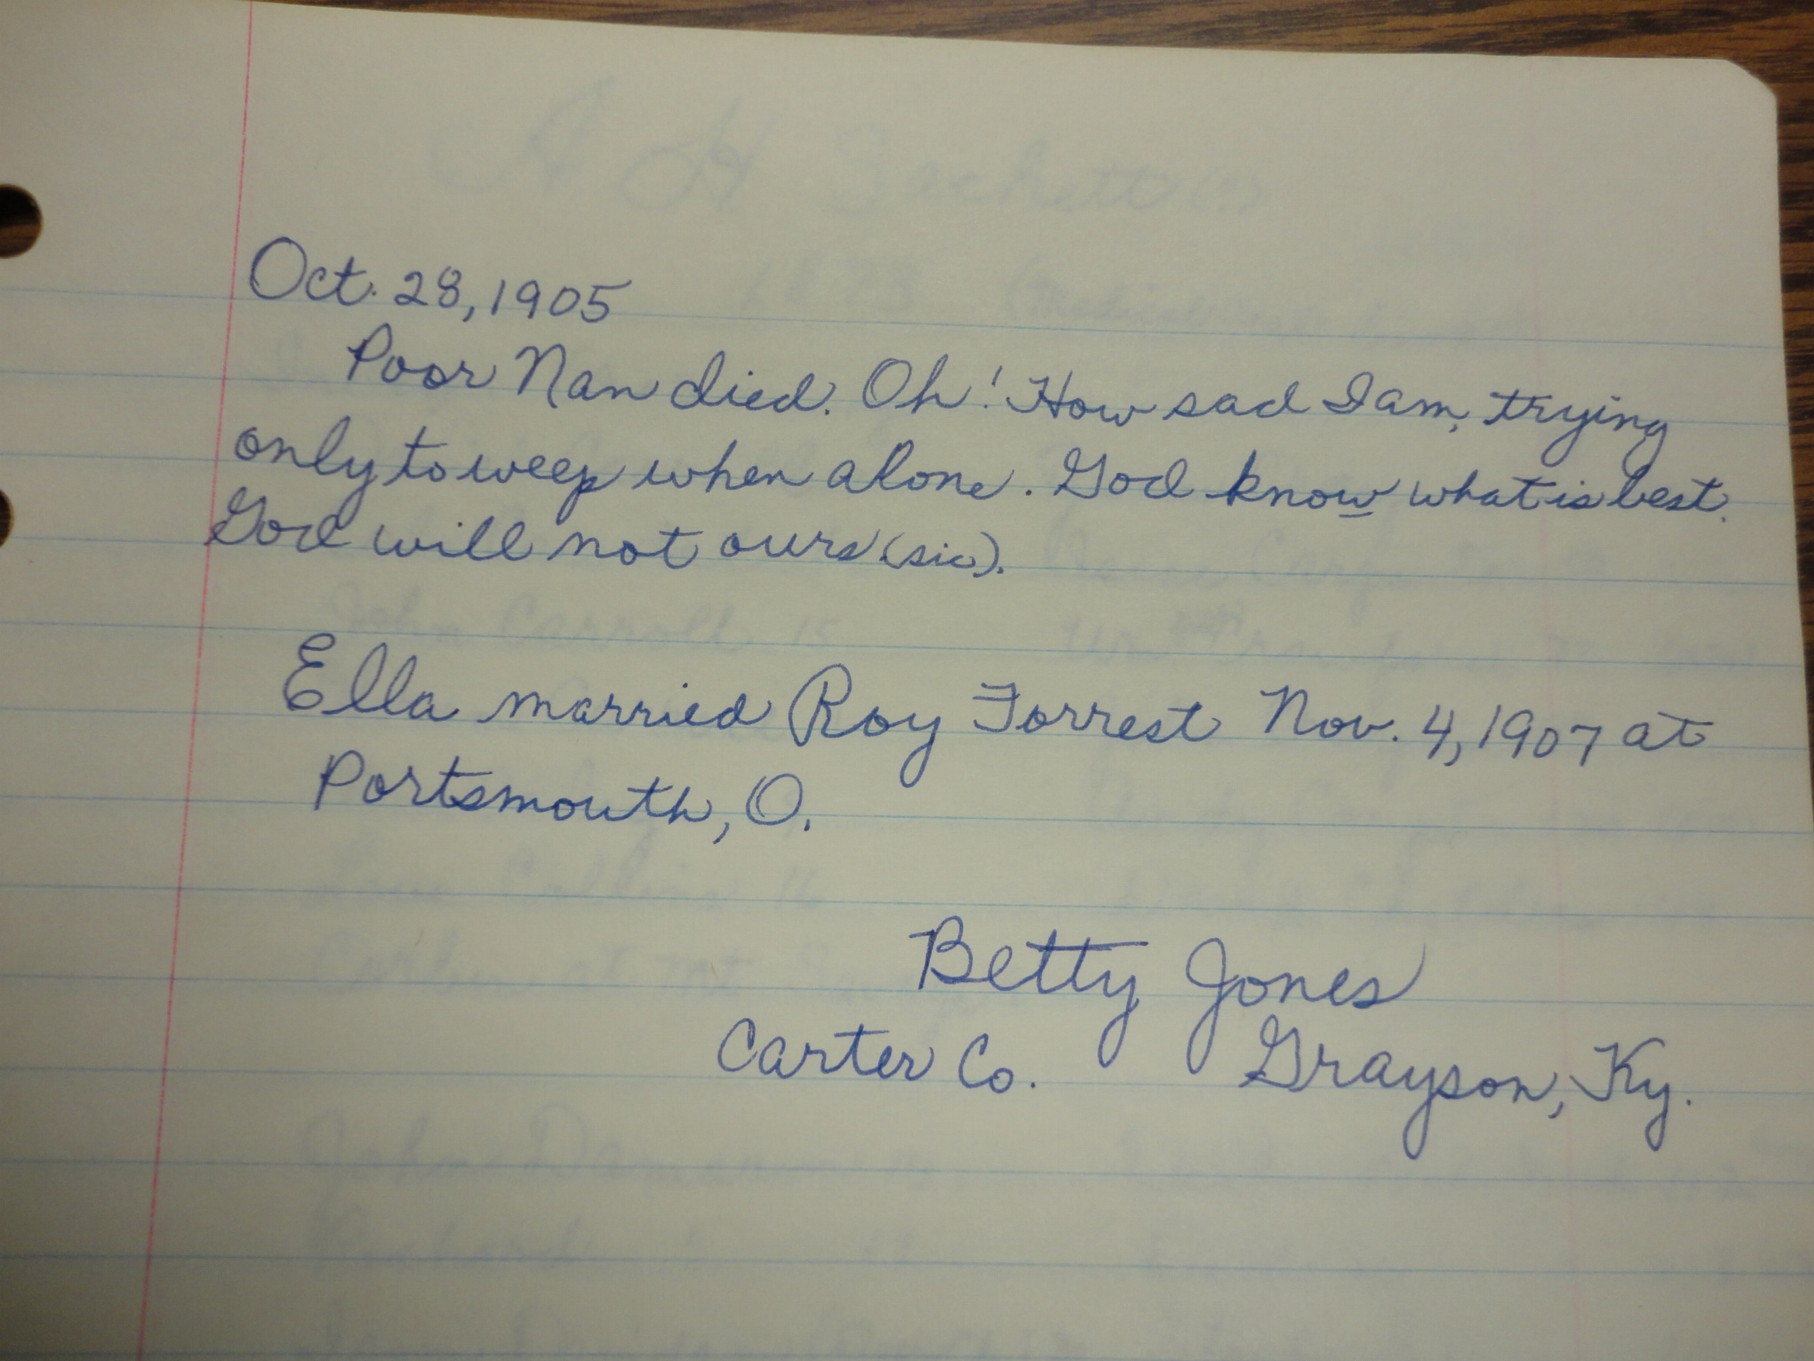 Oct. 28, 1905
Poor Nan died. Oh! How sad I am, trying
only to weep when alone. God know what is best.
God will not ours (sic).
Ella married Roy Forrest Nov. 4, 1907 at
Portsmouth, O.
Betty Jones
Carter Co. Grayson, Ky.